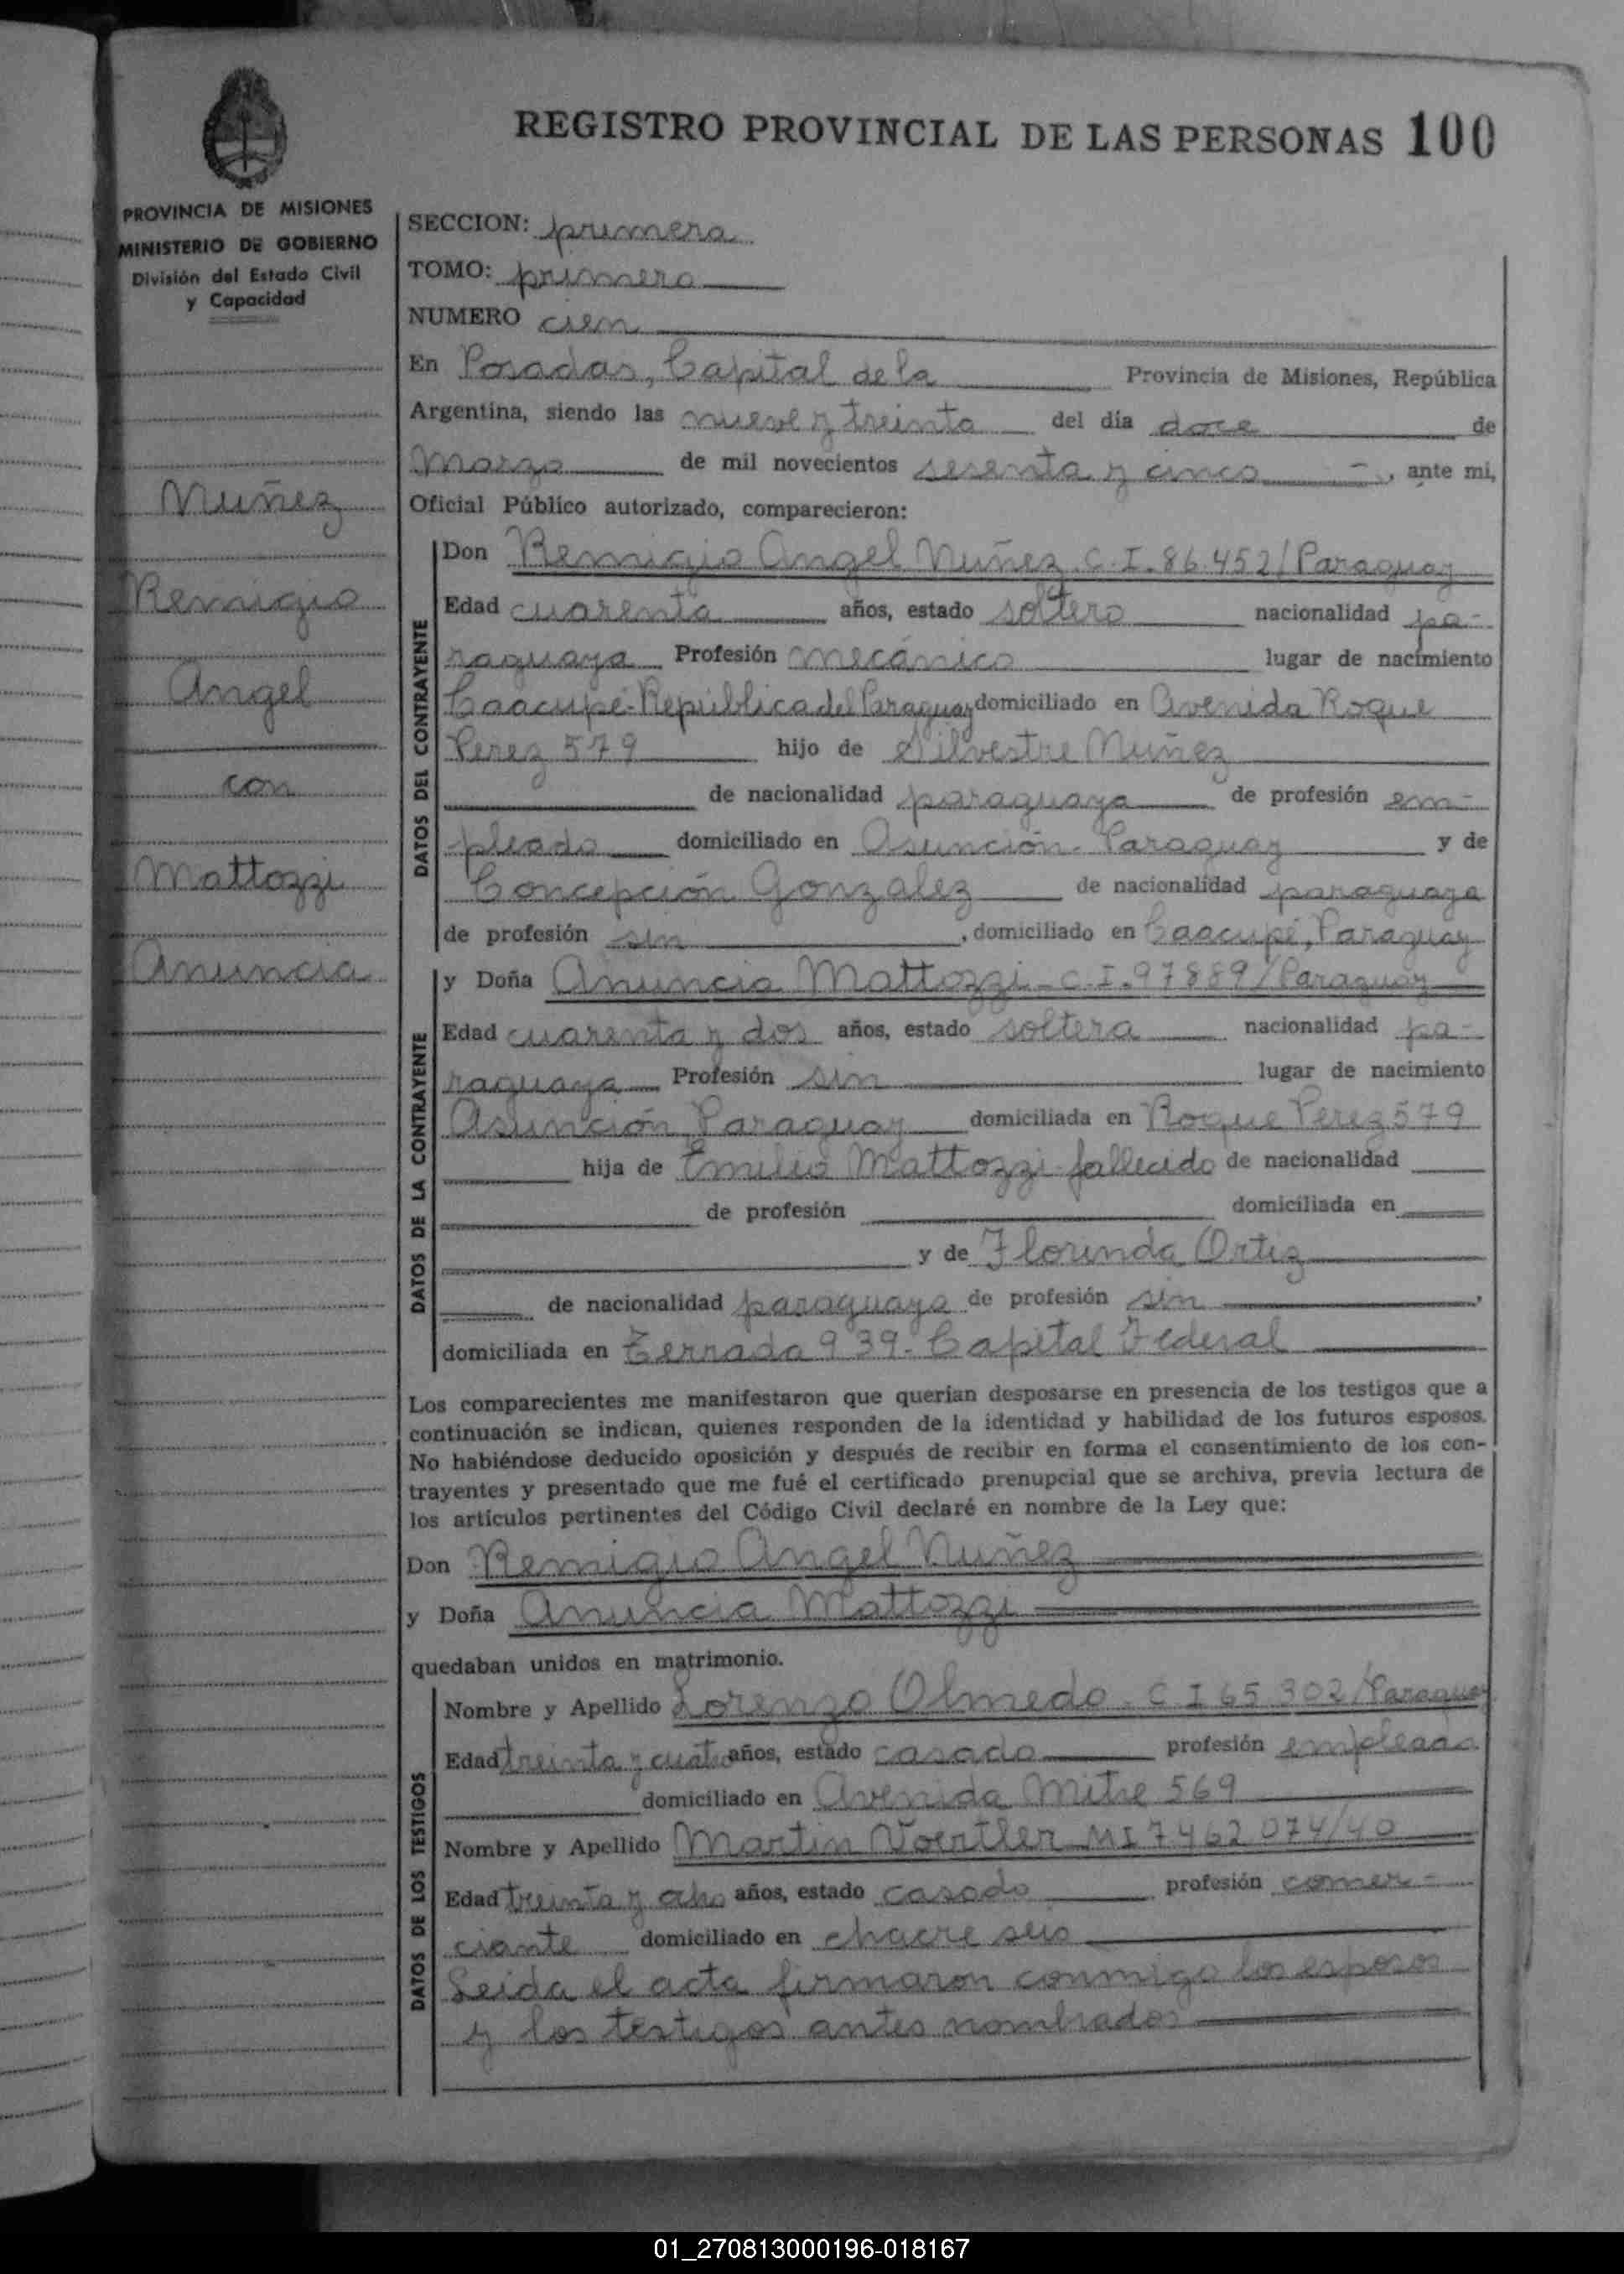 REGISTRO PROVINCIAL DE LAS PERSONAS 100
PROVINCIA DE MISIONES
MINISTERIO DE GOBIERNO
División del Estado Civil
y Capacidad
Nuñez
Remigio
Angel
con
Mattozzi
Anuncia
SECCION: primera
TOMO: primero
NUMERO cien
En Posadas, Capital de la Provincia de Misiones, República
Argentina, siendo las nueve y treinta del día doce de
Marzo de mil novecientos sesenta y cinco -, ante mi,
Oficial Público autorizado, comparecieron:
DATOS DEL CONTRAYENTE
Don Remigio Angel Nuñez C.I. 86.452/Paraguay
Edad cuarenta años, estado soltero nacionalidad pa-
raguaya Profesión mecánico lugar de nacimiento
Caacupé-República del Paraguay domiciliado en Avenida Roque
Perez 579 hijo de Silvestre Nuñez
de nacionalidad paraguaya de profesión em-
pleado domiciliado en Asunción-Paraguay y de
Concepción Gonzalez de nacionalidad paraguaya
de profesión sin, domiciliado en Caacupé, Paraguay
DATOS DE LA CONTRAYENTE
y Doña Anuncia Mattozzi-C.I. 97889/Paraguay
Edad cuarenta y dos años, estado soltera nacionalidad pa-
raguaya Profesión sin lugar de nacimiento
Asunción, Paraguay domiciliada en Roque Perez 579
hija de Emilio Mattozzi-fallecido de nacionalidad
de profesión domiciliada en
y de Florinda Ortiz
de nacionalidad paraguaya de profesión sin,
domiciliada en Terrada 939-Capital Federal
Los comparecientes me manifestaron que querían desposarse en presencia de los testigos que a
continuación se indican, quienes responden de la identidad y habilidad de los futuros esposos.
No habiéndose deducido oposición y después de recibir en forma el consentimiento de los con-
trayentes y presentado que me fué el certificado prenupcial que se archiva, previa lectura de
los artículos pertinentes del Código Civil declaré en nombre de la Ley que:
Don Remigio Angel Nuñez
y Doña Anuncia Mattozzi
quedaban unidos en matrimonio.
DATOS DE LOS TESTIGOS
Nombre y Apellido Lorenzo Olmedo-C I 65.302/Paraguay
Edad treinta y cuatro años, estado casado profesión empleado
domiciliado en Avenida Mitre 569
Nombre y Apellido Martin MI 7462 074/40
Edad treinta y ocho años, estado casado profesión comer-
ciante domiciliado en seis
Leida el acta firmaron conmigo los esposos
y los testigos antes nombrados
01_270813000196-018167